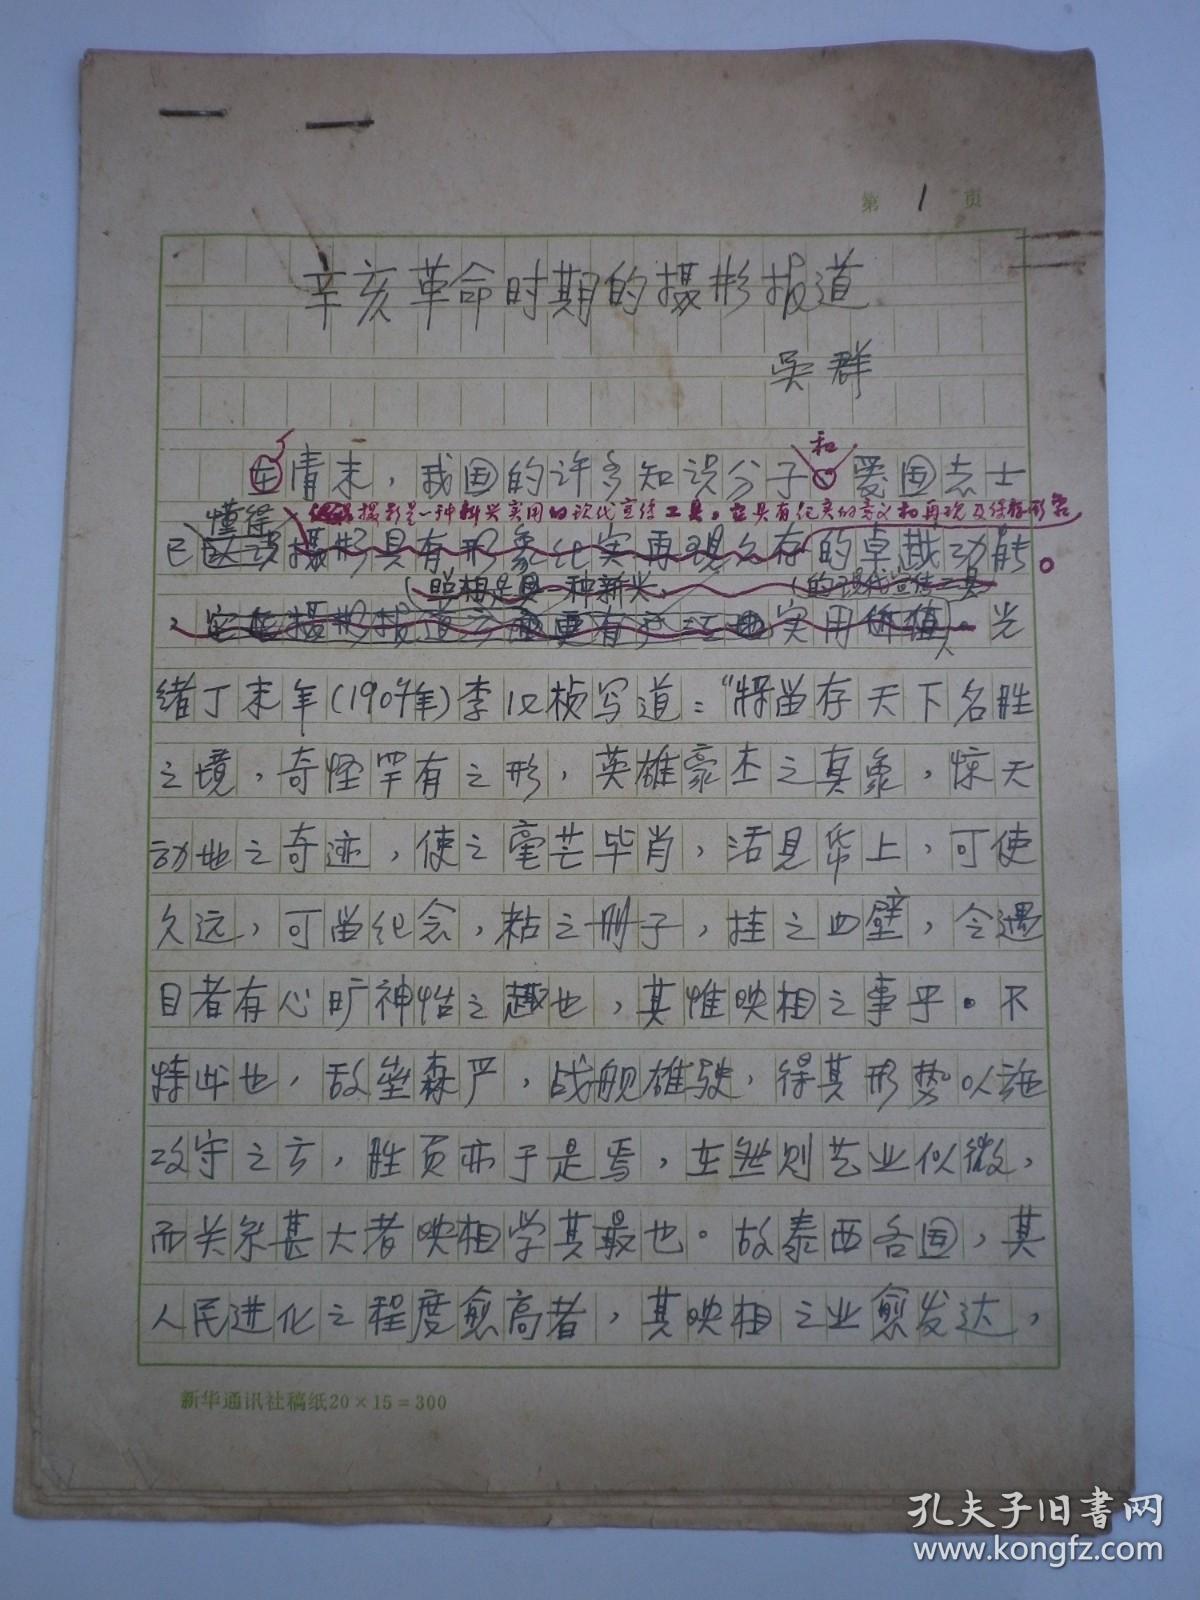 第 1 页
辛亥革命时期的摄影报道
吴群
和
在清末，我国的许多知识分子爱国志士
懂得
摄影是一种新兴实用的现代宣传工具。它具有纪实的意义和再现及保存形象
已认识摄影具有形象纪实再现久存的卓越功能。
照相是具一种新兴、的现代宣传工具
，它在摄影报道方面更有广泛的实用价值。光
绪丁未年(1907年)李以桢写道："将留存天下名胜
之境，奇怪罕有之形，英雄豪杰之真象，惊天
动地之奇迹，使之毫芒毕肖，活见纸上，可使
久远，可留纪念，粘之册子，挂之四壁，令遇
目者有心旷神怡之趣也，其惟映相之事乎。不
特此也，敌垒森严，战舰雄驶，得其形势以施
攻守之方，胜负亦于是焉，在然则艺业似微，
而关系甚大者映相学其最也。故泰西各国，其
人民进化之程度愈高者，其映相之业愈发达，
新华通讯社稿纸20×15=300
孔夫子旧书网
www.kongfz.com